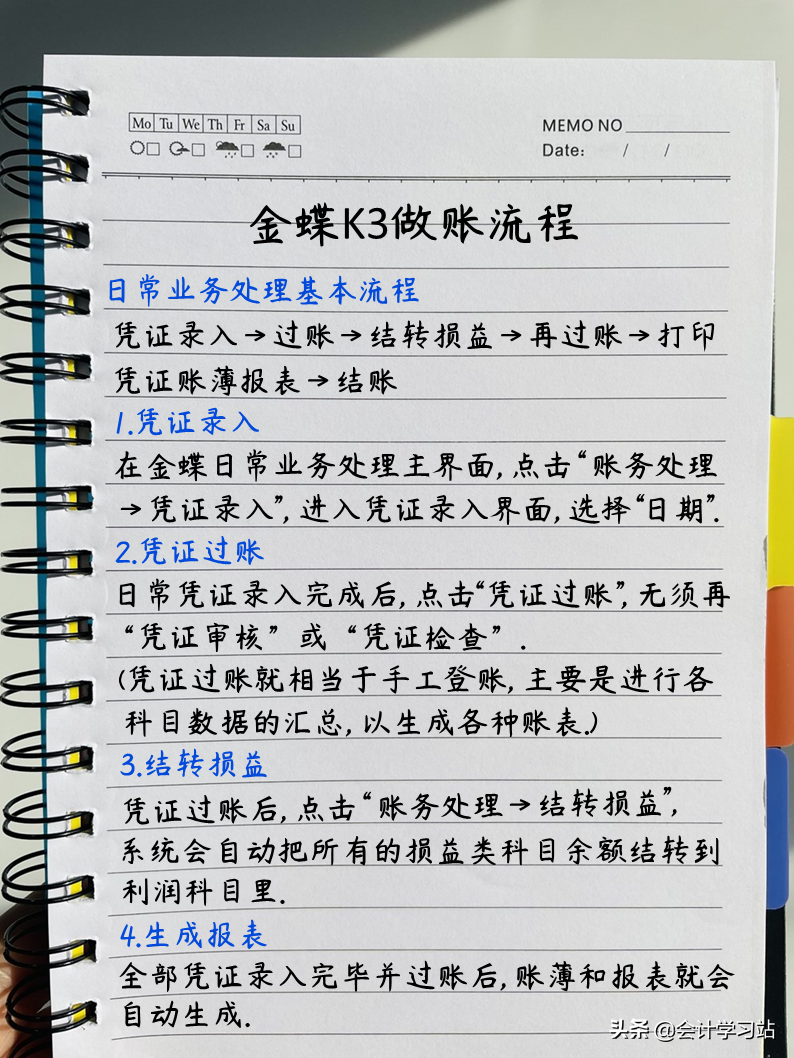 Mo Tu We Th Fr Sa Su
MEMO NO
Date: / /
金蝶K3做账流程
日常业务处理基本流程
凭证录入→过账→结转损益→再过账→打印
凭证账薄报表→结账
1.凭证录入
在金蝶日常业务处理主界面,点击“账务处理
→凭证录入”,进入凭证录入界面,选择“日期”.
2.凭证过账
日常凭证录入完成后,点击“凭证过账”,无须再
“凭证审核”或“凭证检查”.
(凭证过账就相当于手工登账,主要是进行各
科目数据的汇总,以生成各种账表.)
3.结转损益
凭证过账后,点击“账务处理→结转损益”,
系统会自动把所有的损益类科目余额结转到
利润科目里.
4.生成报表
全部凭证录入完毕并过账后,账薄和报表就会
自动生成.
头条 @会计学习站